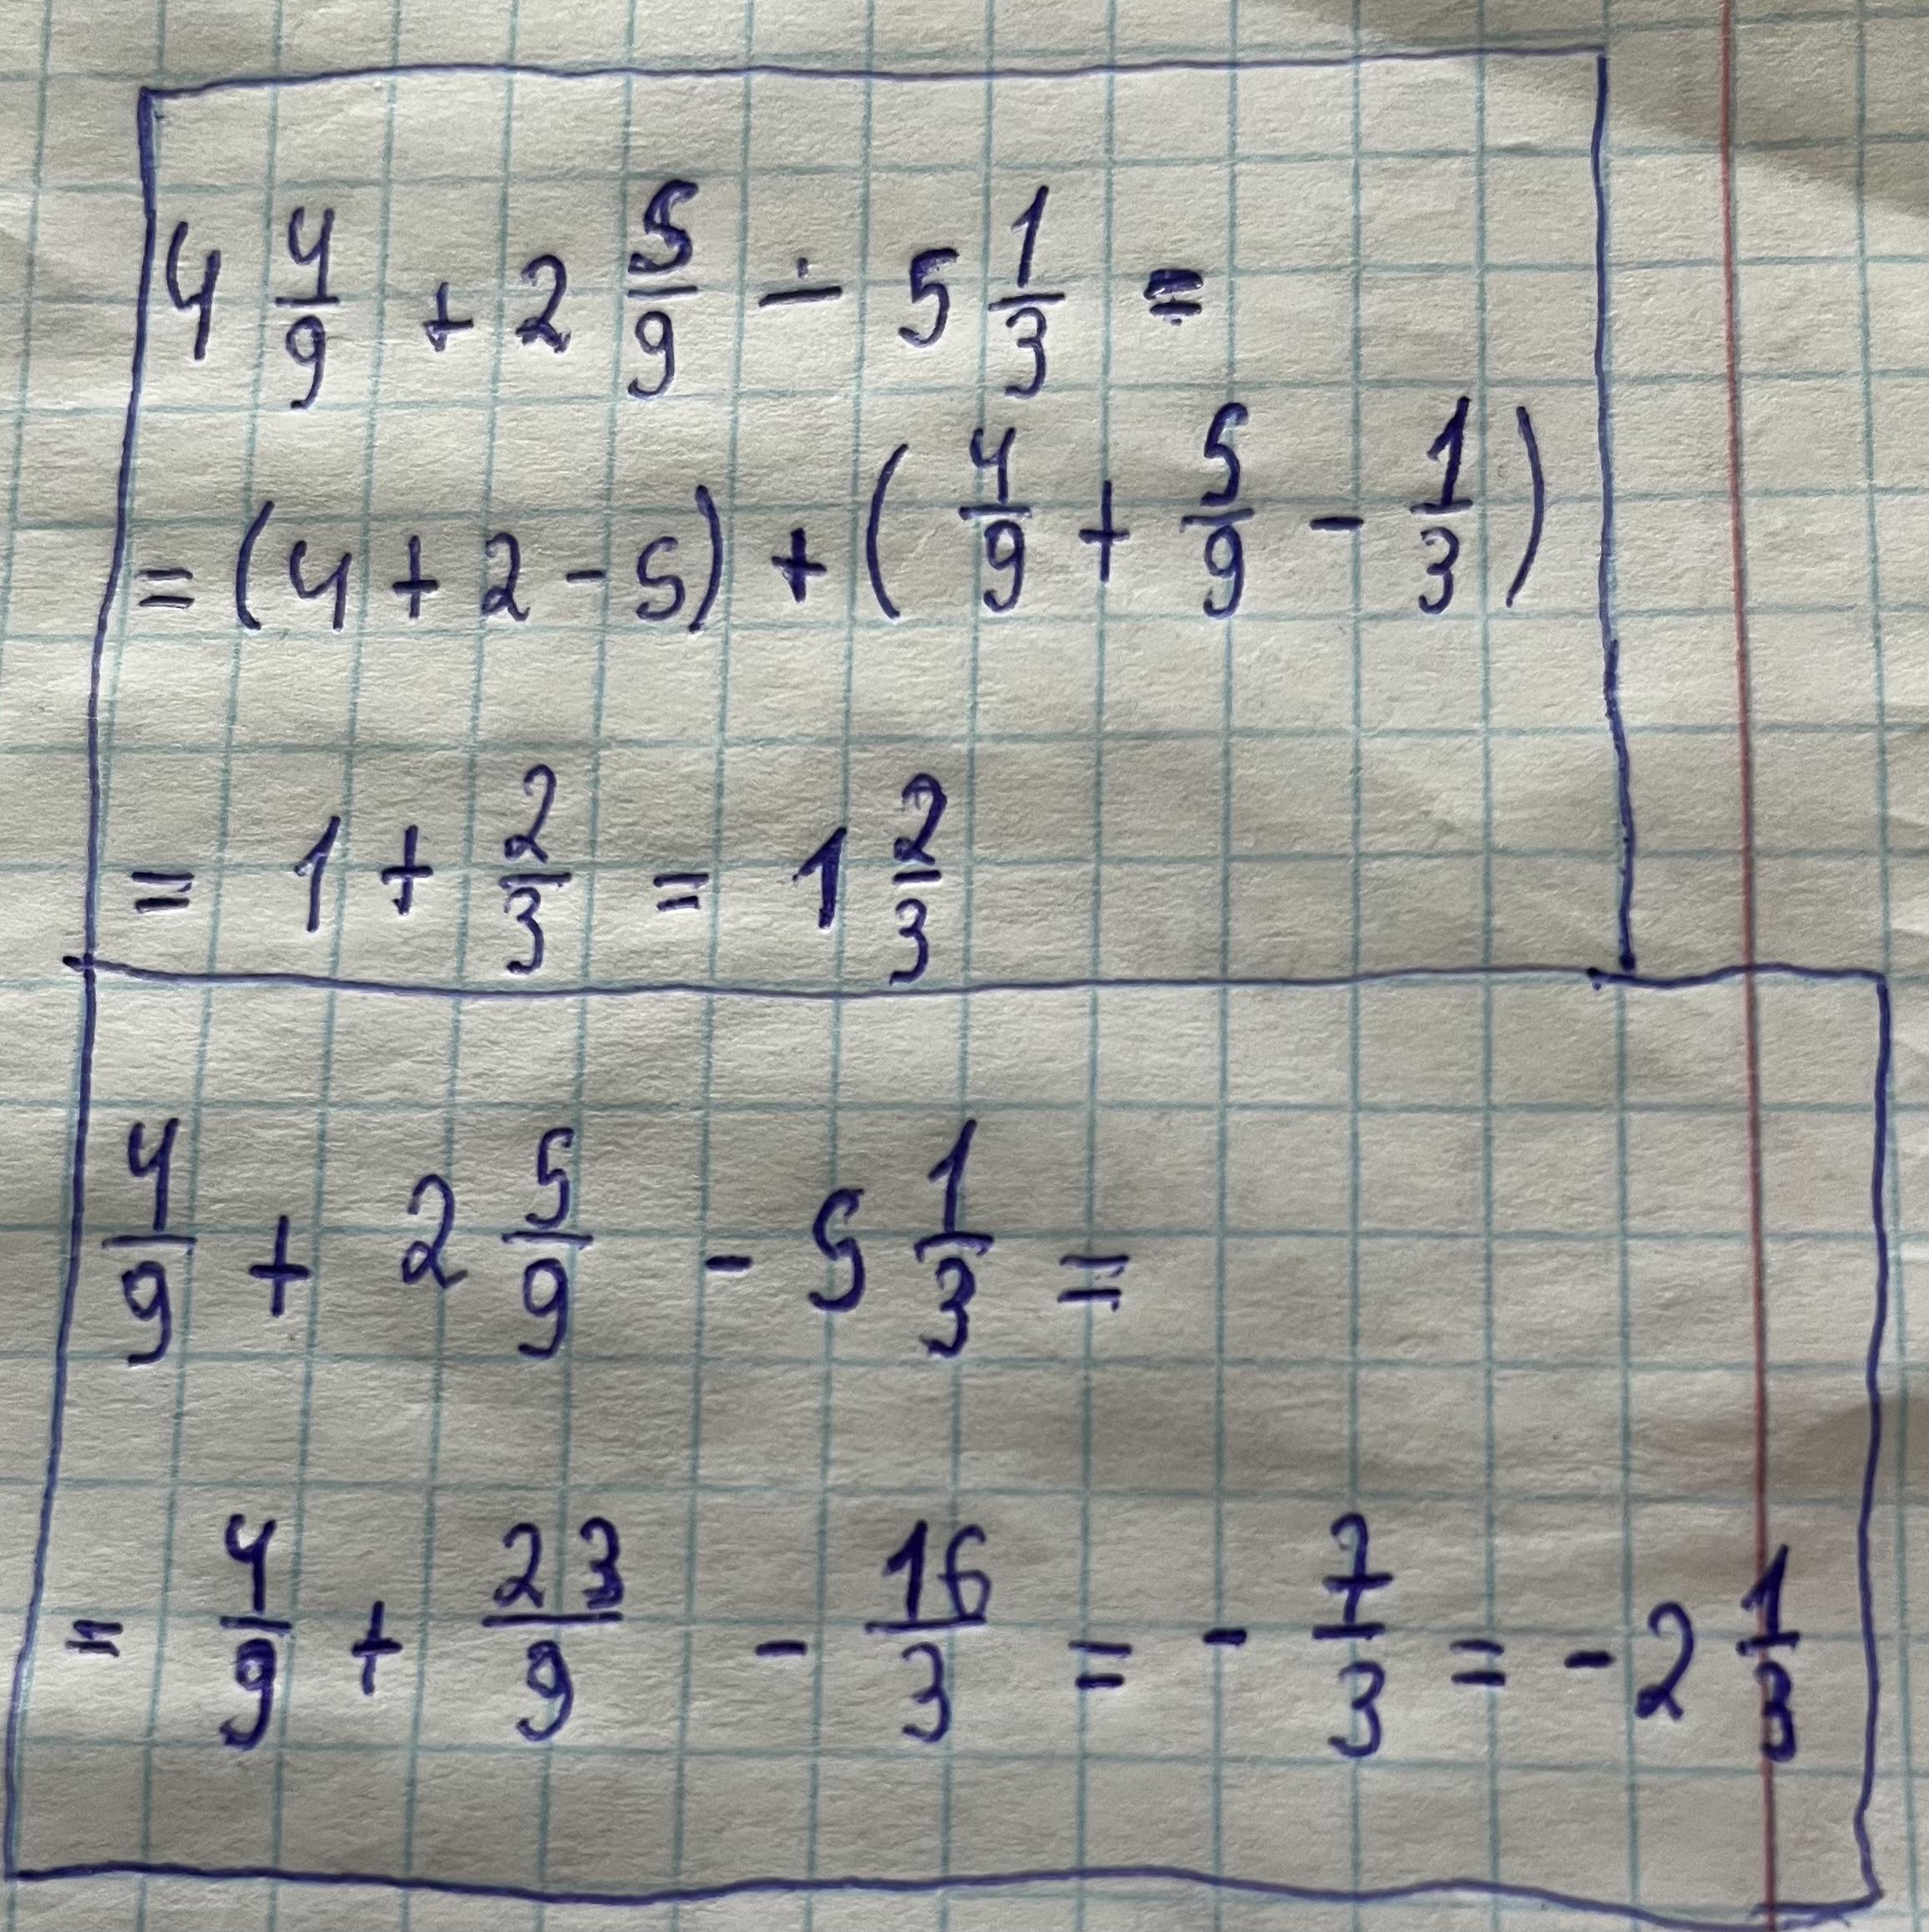 4 4/9 + 2 5/9 - 5 1/3 =
= (4 + 2 - 5) + (4/9 + 5/9 - 1/3)
= 1 + 2/3 = 1 2/3
4/9 + 2 5/9 - 5 1/3 =
= 4/9 + 23/9 - 16/3 = - 7/3 = - 2 1/3